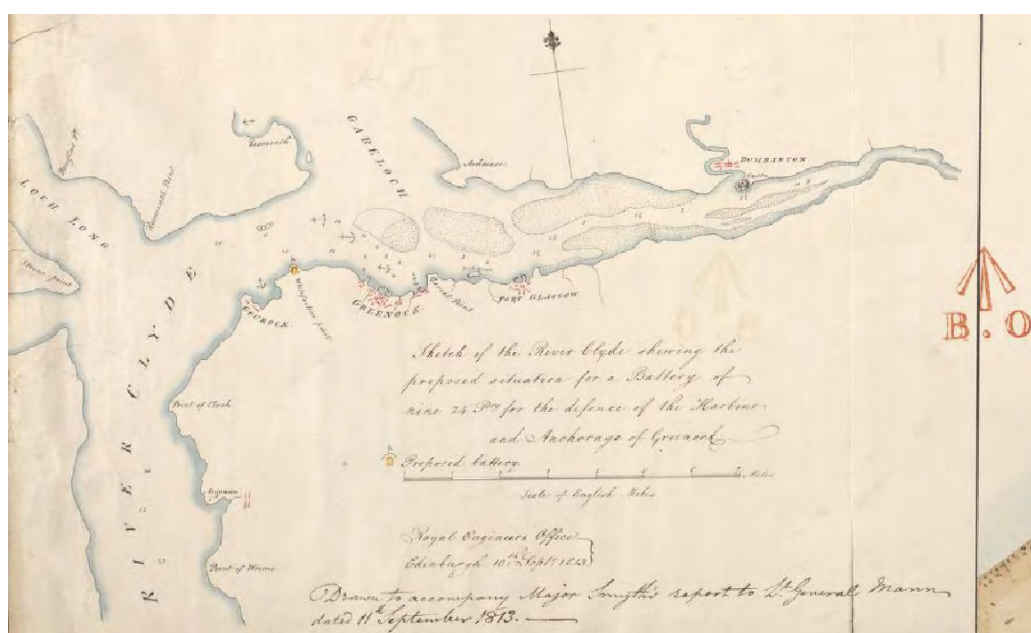 LOCH LONG
Roseneath Point
Roseneath
GARELOCH
Ardmore
DUMBARTON
Castle
RIVER CLYDE
GOUROCK
Whiteforeland point
GREENOCK
Garvel Point
PORT GLASGOW
Point of Cloch
Point of Weems
Sketch of the River Clyde shewing the
proposed situation for a Battery of
nine 24 Prs for the defence of the Harbour
and Anchorage of Greenock
Proposed battery.
Miles
Scale of English Miles
Royal Engineers Office
Edinburgh 10th Septr 1813
Drawn to accompany Major Smyth's report to Lt. General Mann
dated 11th September 1813.
B.O